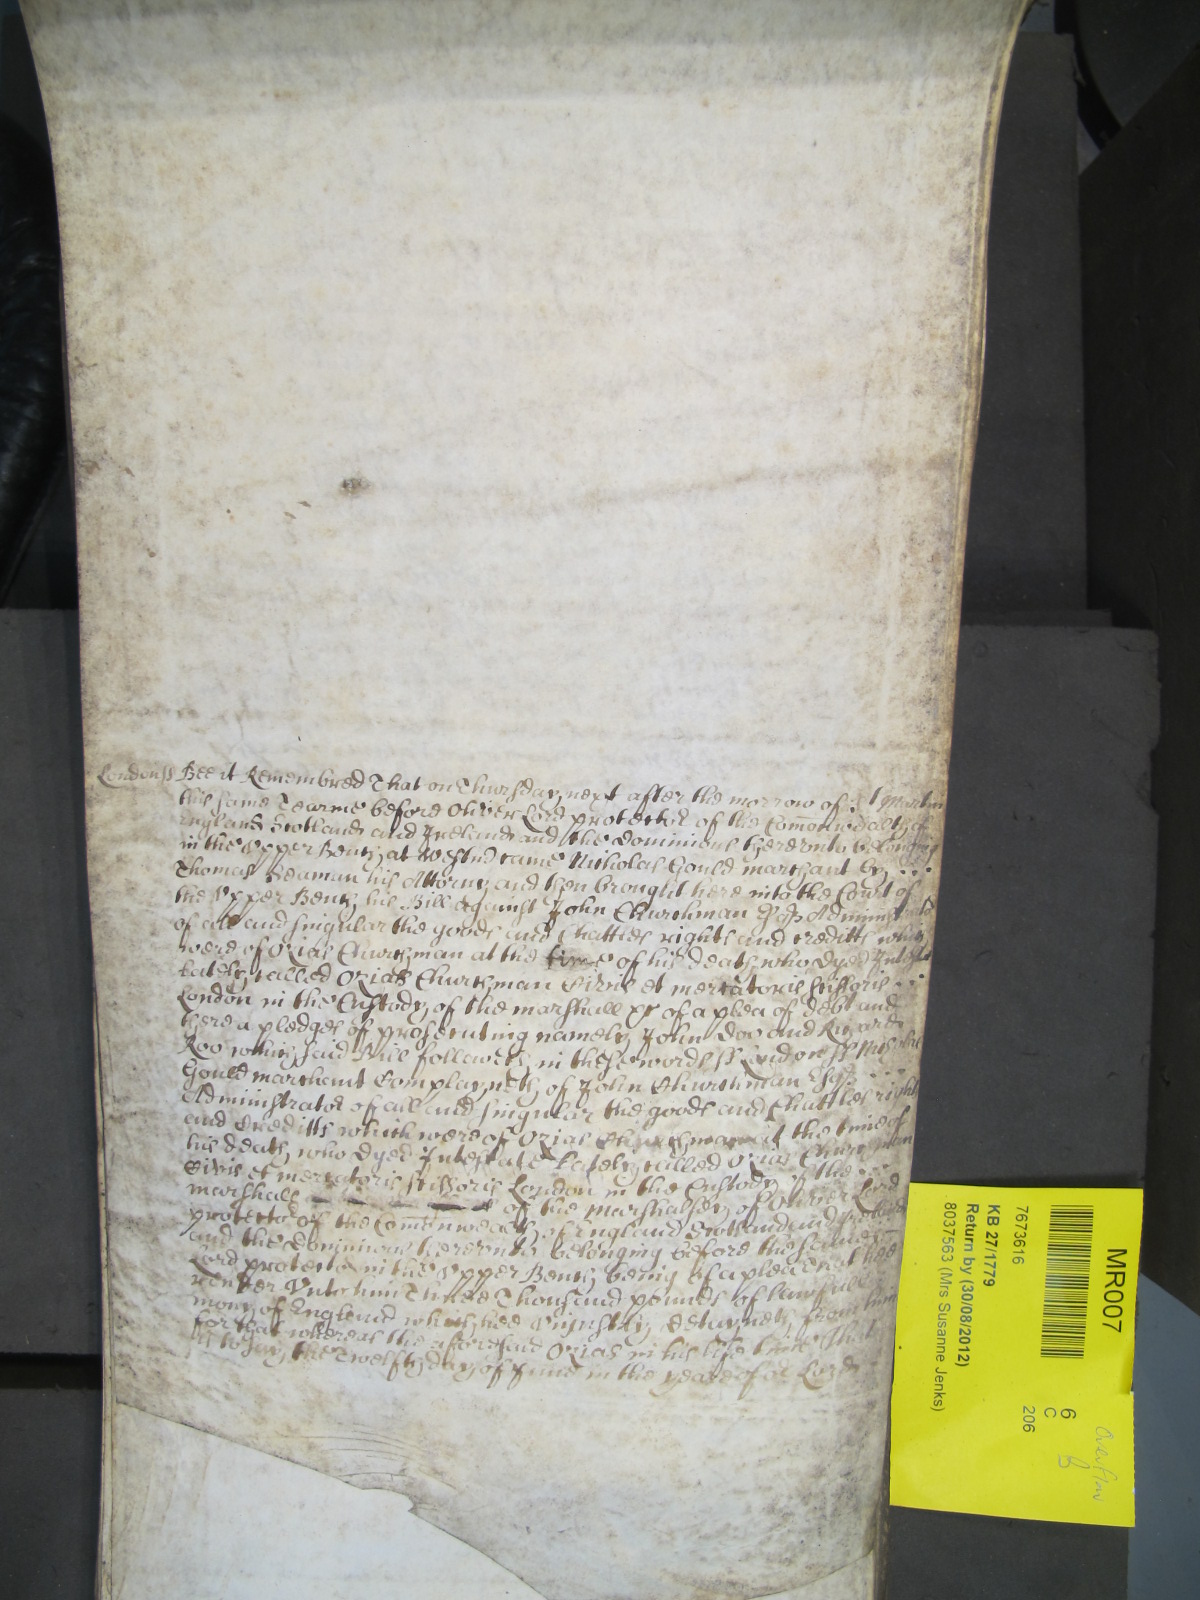 London ss Bee it Remembred That on Thursday next after the morrow of St Martin
this same Tearme before Oliver Lord protector of the Comonwealth of
England Scotland and Ireland and the dominions thereunto belonging
in the Upper Bench at Westmr came Nicholas Gould marchant by ...
Thomas Beaman his Attorny and then brought here into the Court of
the Upper Bench his Bill against John Churchman Esqr Administrator
of all and singular the goods and Chattles rights and creditts which
were of Ozias Churchman at the time of his death who dyed Intestate
Lately called Ozias Churchman Civis et mercatoris scissoris ..
London in the Custody of the marshall &c of a plea of debt and
there a pledges of prosecuting namely John Doo and Richard
Roo which said Bill followeth in these words ss London ss Nicholas
Gould marchant Complayneth of John Churchman Esqr ...
Administrator of all and singular the goods and Chattles rights
and Creditts which were of Ozias Churchman at the time of
his death who dyed Intestate Lately called Ozias Churchman
Civis et mercatoris scissoris London in the Custody of the ...
marshall of the marshalsey of Oliver Lord
protector of the Comonwealth of England Scotland and Ireland
and the dominions thereunto belonging before the same
Lord protector in the Upper Bench being of a plea that hee
render Unto him Three Thousand pounds of lawfull
mony of England which hee Unjustly detayneth from him
for that whereas the aforesaid Ozias in his life time That
is to say the Twelfth day of June in the yeare of or Lord
MR007
7673616
KB 27/1779
Return by (30/08/2012)
8037563 (Mrs Susanne Jenks)
6
C
206
Overflow
B